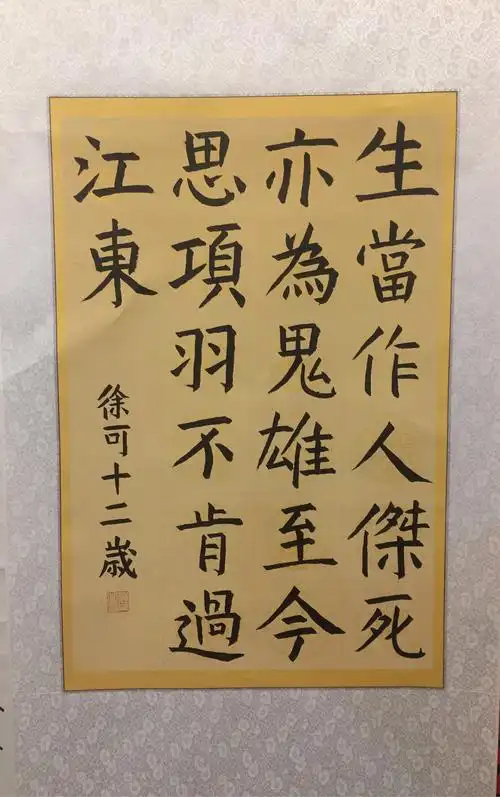 生當作人傑死
亦為鬼雄至今
思項羽不肯過
江東
徐可十二歲